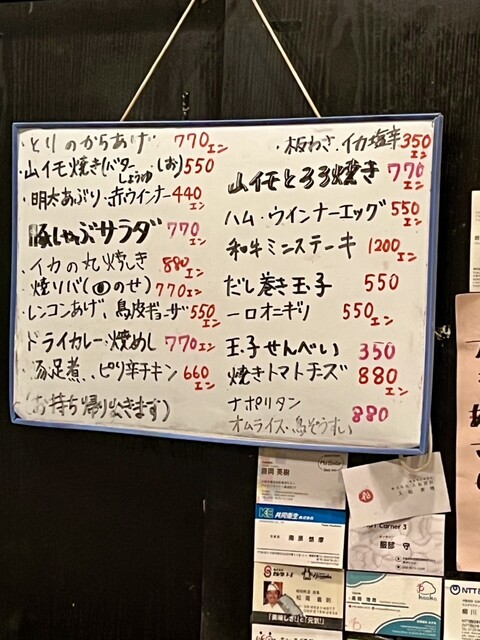 ・とりのからあげ 770エン
山イモ焼き(バターしょうゆ しお) 550
・明太あぶり・赤ウインナー 440エン
豚しゃぶサラダ 770エン
・イカの丸焼き 880エン
焼リバ(のせ) 770エン
・レンコンあげ、鳥皮ギョーザ 550エン
ドライカレー・焼めし 770エン
豚足煮、ピリ辛チキン 660エン
(お持ち帰り出きます)
・板わさ、イカ塩辛 350エン
山イモとろろ焼き 770エン
ハム・ウインナーエッグ 550エン
和牛ミニステーキ 1200エン
だし巻き玉子 550
一口オニギリ 550エン
玉子せんべい 350
焼きトマトチーズ 880エン
ナポリタン
オムライス・鳥ぞうすい 880
KE 共同衛生 株式会社
南原 悠摩
Corner 3
服部 守
松尾 義則
「美味しさ!」と「元気!」
NTT
細川